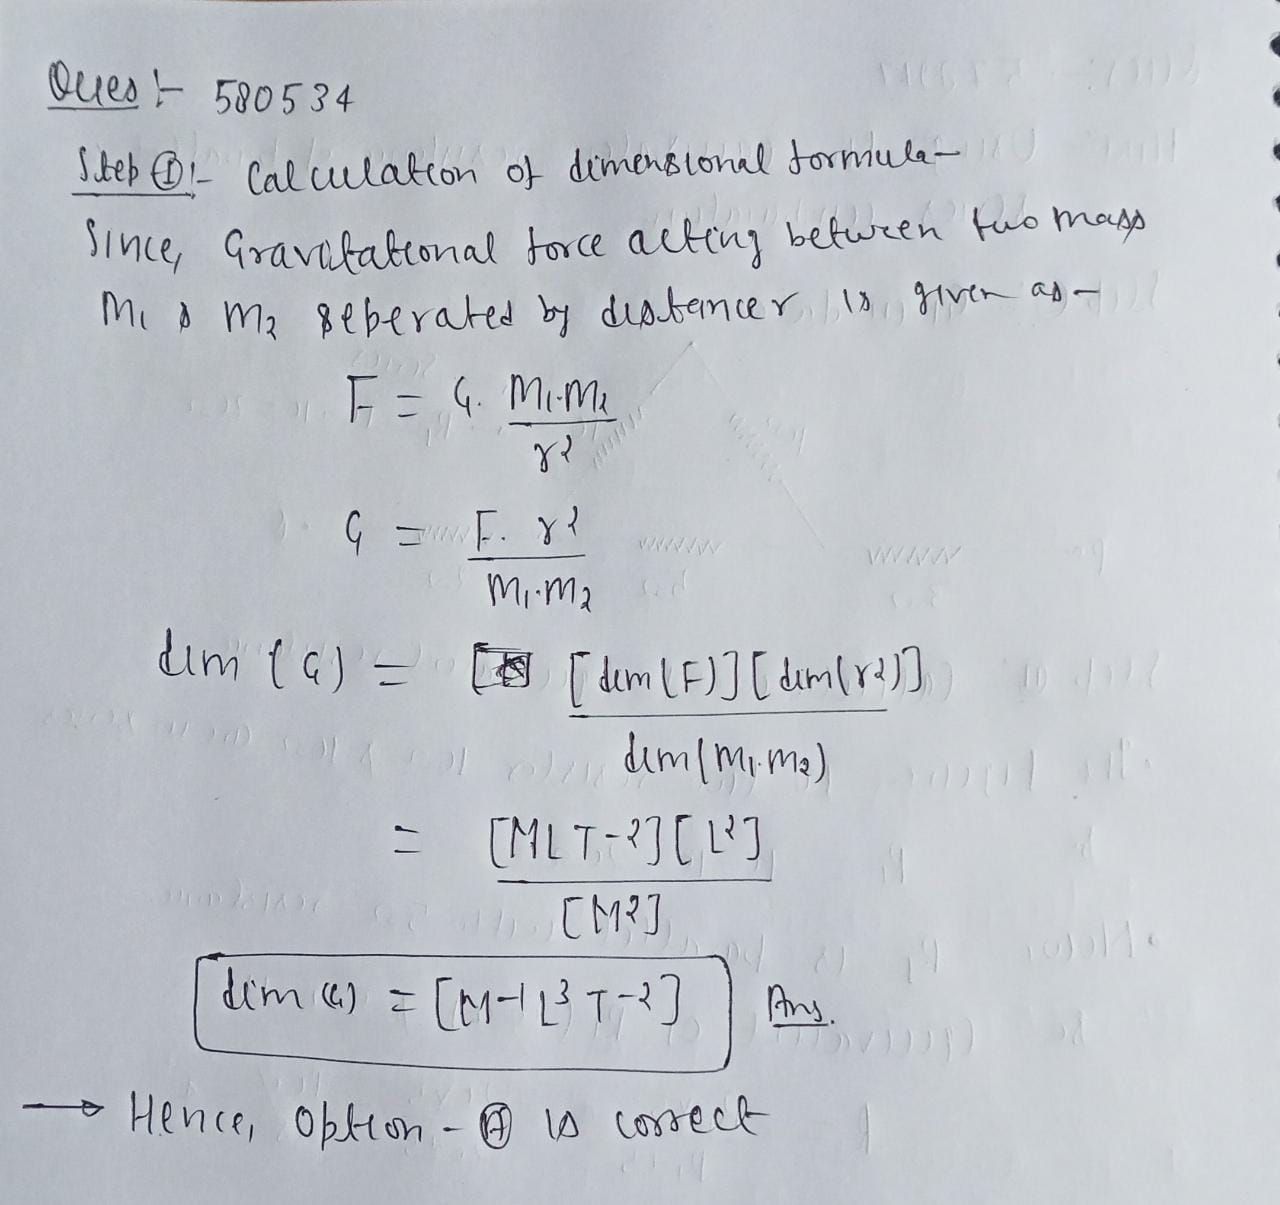 Ques:- 580534
Step ①:- Calculation of dimensional formula-
Since, Gravitational force acting between two mass
m₁ & m₂ seperated by distance r is given as-
F = G. m₁.m₂
r²
G = F. r²
m₁.m₂
dim (G) = [dim(F)][dim(r²)]
dim(m₁.m₂)
= [MLT-²][L²]
[M²]
dim (G) = [M-1 L³ T-²] Ans.
→ Hence, Option - Ⓐ is correct